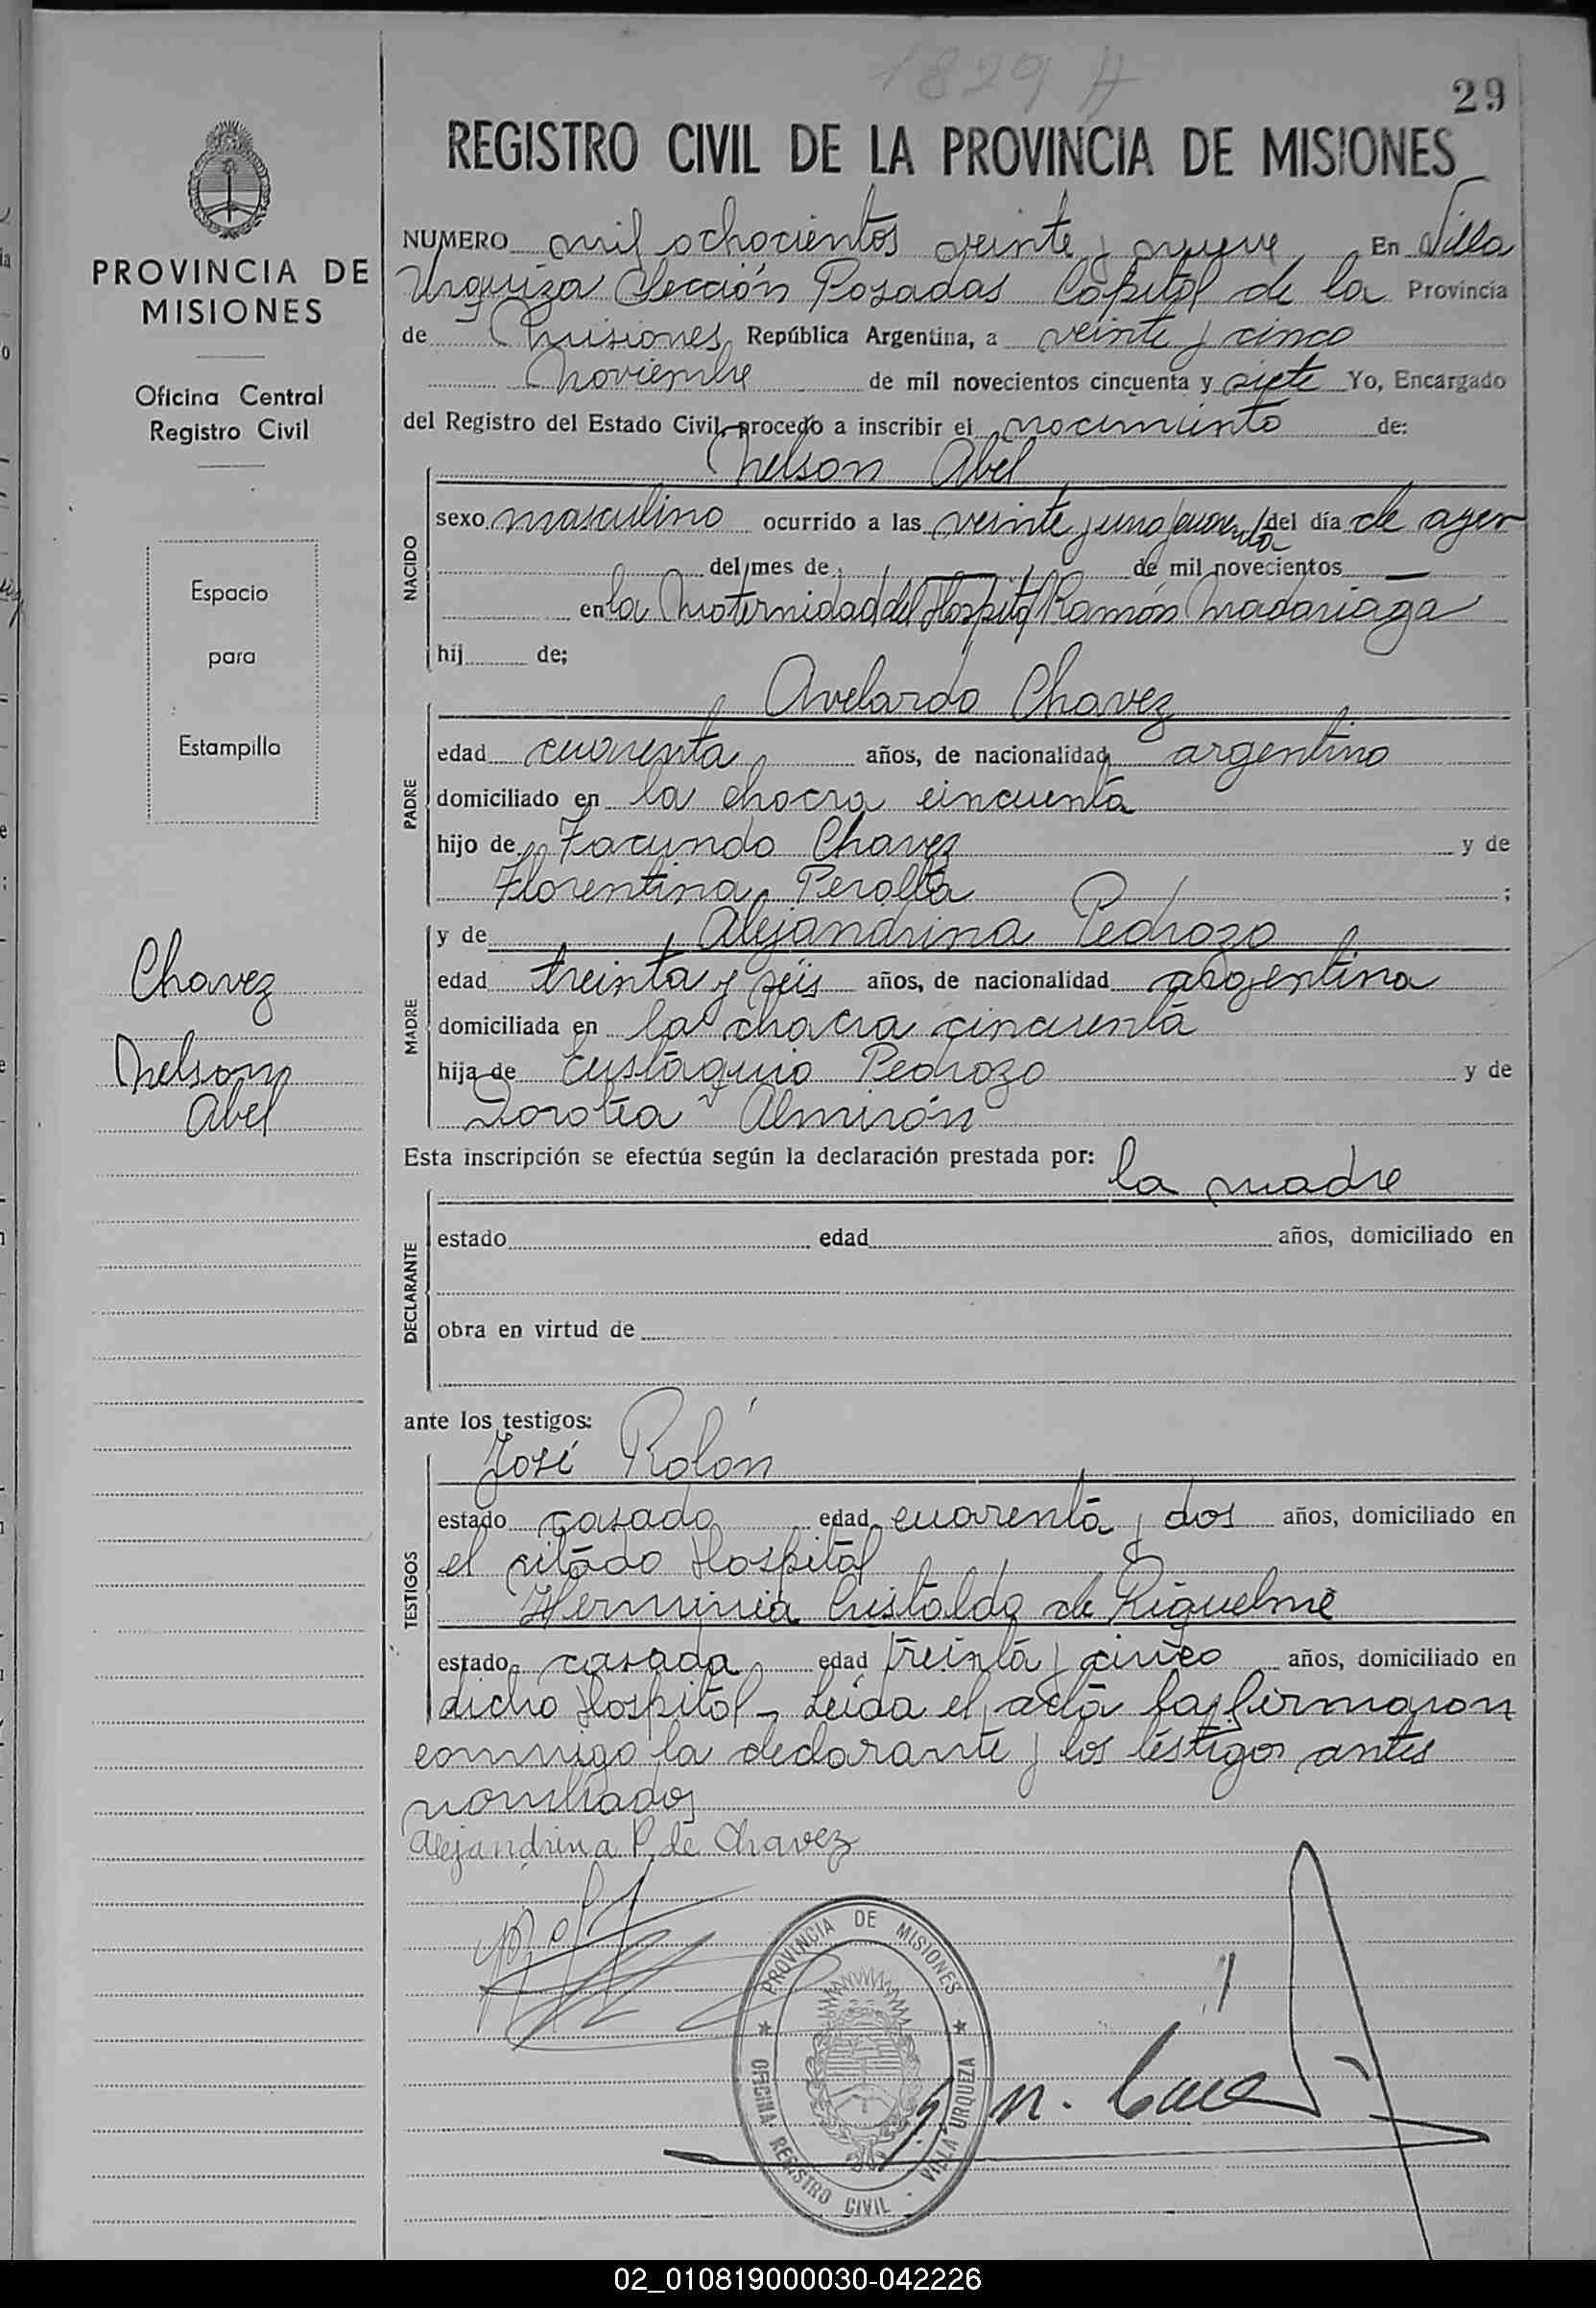 1829 A
29
REGISTRO CIVIL DE LA PROVINCIA DE MISIONES
PROVINCIA DE
MISIONES
Oficina Central
Registro Civil
Espacio
para
Estampilla
Chavez
Nelson
Abel
NUMERO mil ochocientos veinte y nueve En Villa
Urquiza Sección Posadas Capital de la Provincia
de Misiones República Argentina, a veinte y cinco
Noviembre de mil novecientos cincuenta y siete Yo, Encargado
del Registro del Estado Civil, procedo a inscribir el nacimiento de:
Nelson Abel
NACIDO
sexo masculino ocurrido a las veinte y una y cuarenta del día de ayer
del mes de de mil novecientos
en la Maternidad del Hospital Ramón Madariaga
hij de;
Avelardo Chavez
PADRE
edad cuarenta años, de nacionalidad argentino
domiciliado en la chacra cincuenta
hijo de Facundo Chavez y de
Florentina Peralta ;
y de Alejandrina Pedrozo
MADRE
edad treinta y seis años, de nacionalidad argentina
domiciliada en la chacra cincuenta
hija de Eustaquio Pedrozo y de
Dorotea Almirón
Esta inscripción se efectúa según la declaración prestada por:
la madre
DECLARANTE
estado edad años, domiciliado en
obra en virtud de
ante los testigos:
José Rolón
TESTIGOS
estado casado edad cuarenta y dos años, domiciliado en
el citado Hospital
Herminia Cristaldo de Riquelme
estado casada edad treinta y cinco años, domiciliado en
dicho Hospital - Leída el acta la firmaron
conmigo la declarante y los testigos antes
nombrados
Alejandrina P. de Chavez
PROVINCIA DE MISIONES
OFICINA REGISTRO CIVIL - VILLA URQUEZA
02_010819000030-042226